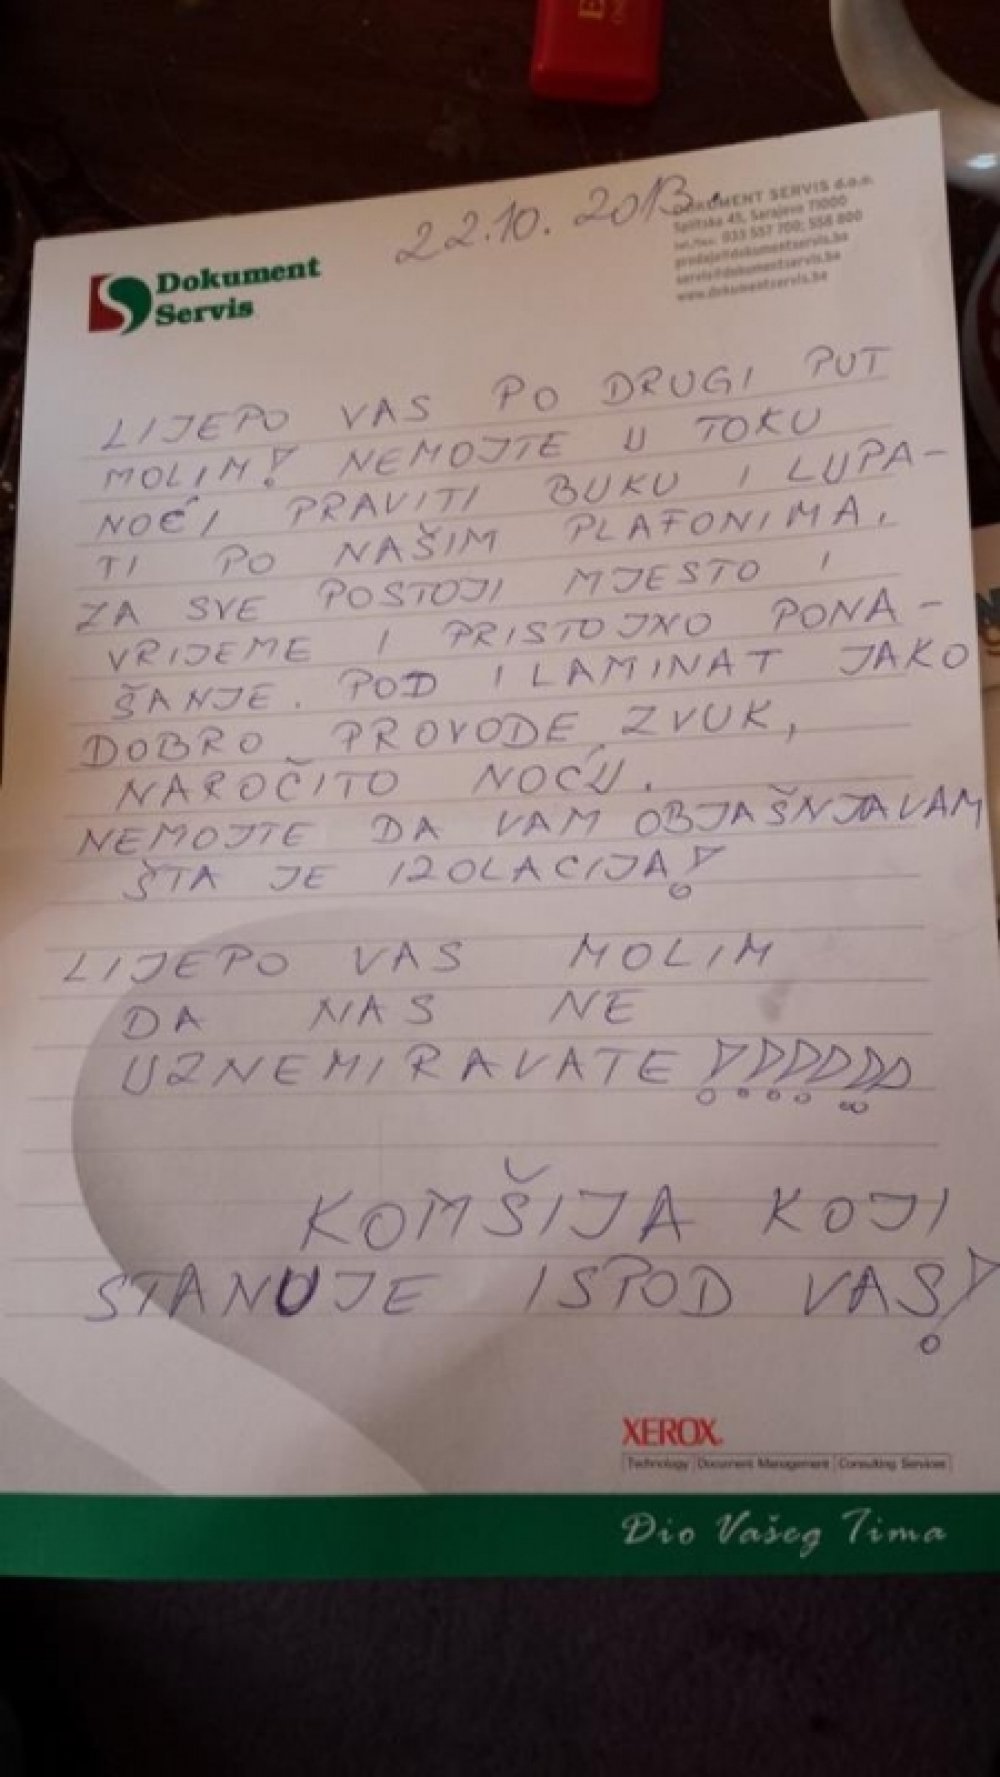 22.10.2013.
Dokument
Servis
DOKUMENT SERVIS d.o.o.
Splitska 45, Sarajevo 71000
tel./fax: 033 557 700; 558 800
prodaja@dokumentservis.ba
servis@dokumentservis.ba
www.dokumentservis.ba
LIJEPO VAS PO DRUGI PUT
MOLIM! NEMOJTE U TOKU
NOĆI PRAVITI BUKU I LUPA-
TI PO NAŠIM PLAFONIMA,
ZA SVE POSTOJI MJESTO I
VRIJEME I PRISTOJNO PONA-
ŠANJE. POD I LAMINAT JAKO
DOBRO PROVODE ZVUK,
NAROČITO NOĆU.
NEMOJTE DA VAM OBJAŠNJAVAM
ŠTA JE IZOLACIJA!
LIJEPO VAS MOLIM
DA NAS NE
UZNEMIRAVATE !!!!!!
KOMŠIJA KOJI
STANUJE ISPOD VAS!
XEROX.
Technology | Document Management | Consulting Services
Dio Vašeg Tima